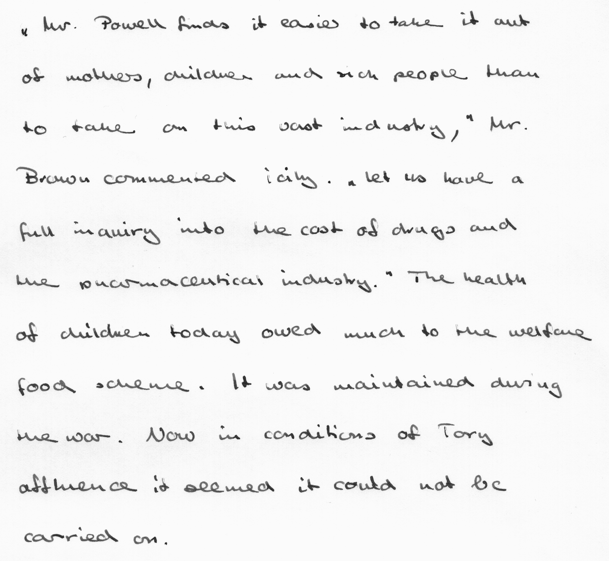 „Mr. Powell finds it easier to take it out
of mothers, children and sick people than
to take on this vast industry," Mr.
Brown commented icily. „let us have a
full inquiry into the cost of drugs and
the pharmaceutical industry." The health
of children today owed much to the welfare
food scheme. It was maintained during
the war. Now in conditions of Tory
affluence it seemed it could not be
carried on.